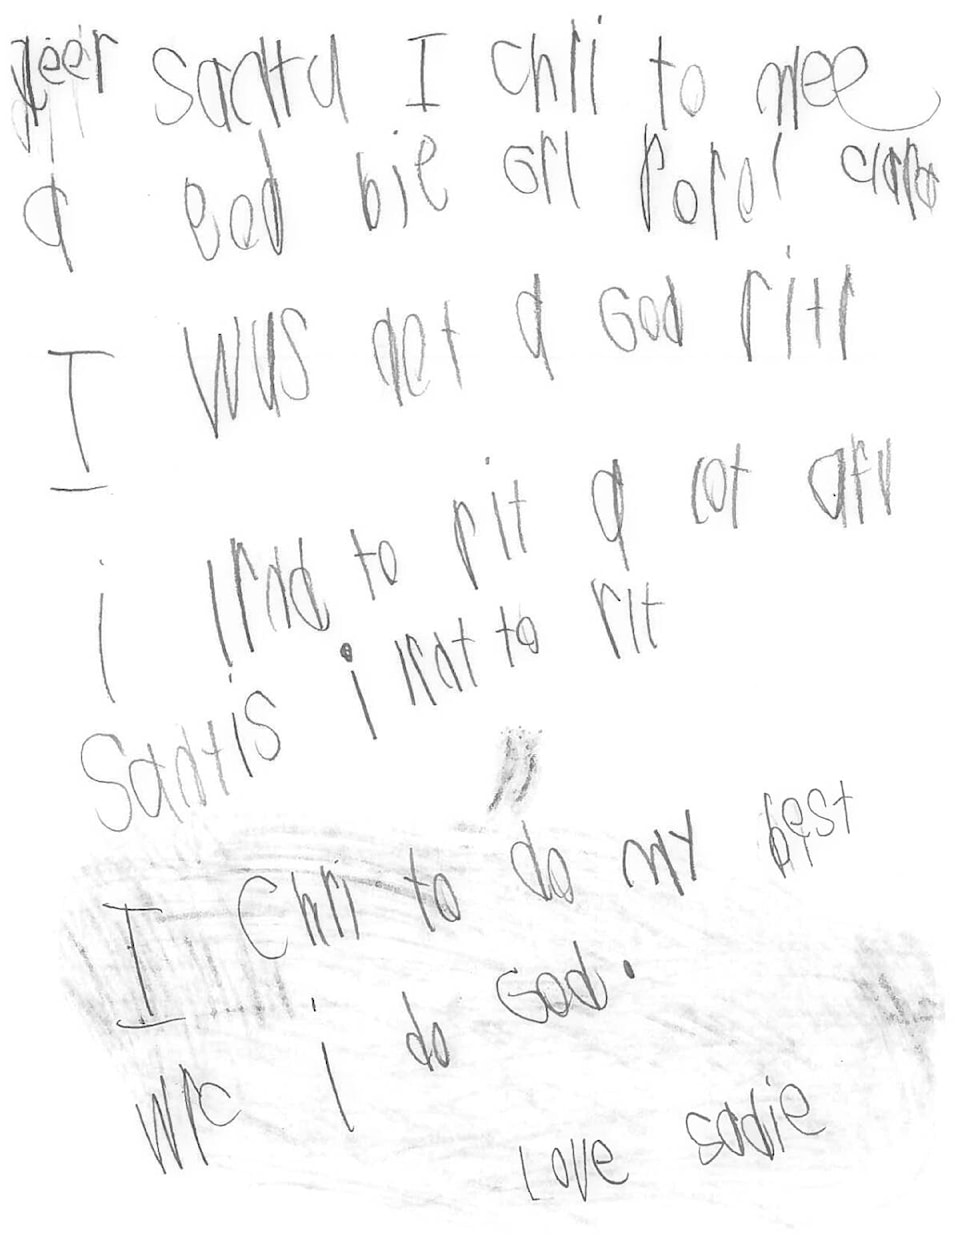 Deer Sadtu I chri to mee
a God bie orl
I wus not a God ritr
i lrnd to rit a lot afv
Sadtis i kat to rit
I Chri to do my best
wrc i do God.
Love sadie